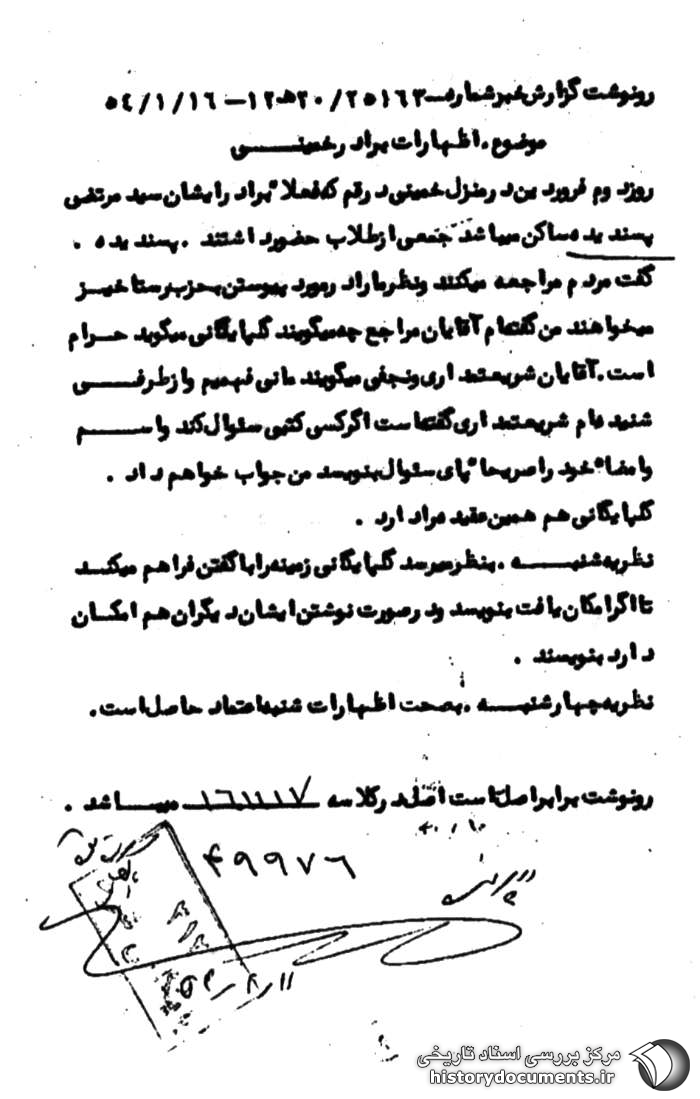 رونوشت گزارش خبر شماره ۲۵۱۶۳/ ۲۰ ه‍ ۱۲ – ۵۴/۱/۱۶
موضوع . اظهارات برادر خمینی
روز دوم فروردین در منزل خمینی در قم که فعلا" برادر ایشان سید مرتضی
پسندیده ساکن میباشد جمعی از طلاب حضور داشتند . پسندیده .
گفت مردم مراجعه میکنند و نظر ما را در مورد پیوستن بحزب رستاخیز
میخواهند من گفته‌ام آقایان مراجع چه میگویند گلپایگانی میگوید حرام
است . آقایان شریعتمداری و نجفی میگویند ما نی فهمیم و از طرفی
شنیده‌ام شریعتمداری گفته است اگر کسی کتبی سئوال کند و اسم
و امضاء خود را صریحا" پای سئوال بنویسد من جواب خواهم داد .
گلپایگانی هم همین عقیده را دارد .
نظریه شنبه . بنظر میرسد گلپایگانی زمینه را با گفتن فراهم میکند
تا اگر امکان یافت بنویسد و در صورت نوشتن ایشان دیگران هم امکان
دارد بنویسند .
نظریه چهارشنبه . بصحت اظهارات شنبه اعتماد حاصل است .
رونوشت برابر اصل است اصل در کلاسه ۱۶۱۱۱۷ میباشد .
۴۹۹۷۶
مرکز بررسی اسناد تاریخی
historydocuments.ir